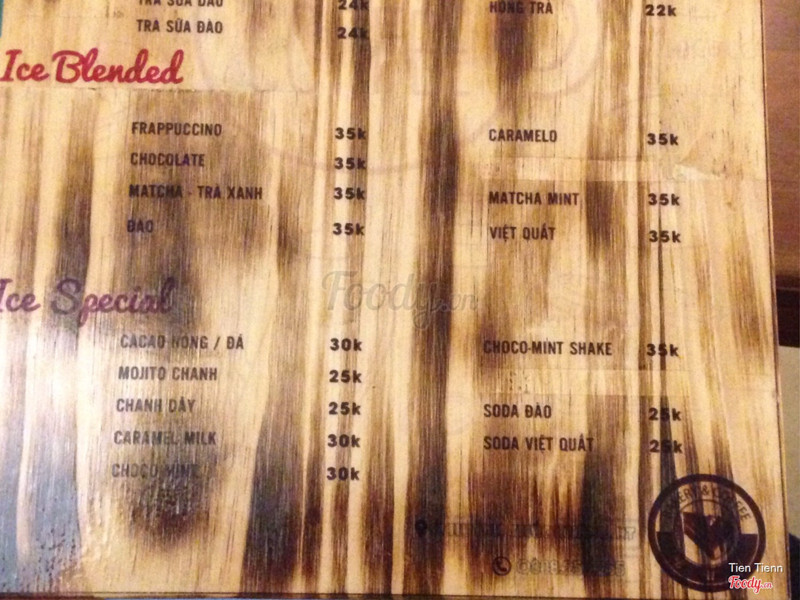 TRÀ SỮA DÂU 24k
TRÀ SỮA ĐÀO 24k
HỒNG TRÀ 22k
Ice Blended
FRAPPUCCINO 35k
CHOCOLATE 35k
MATCHA - TRÀ XANH 35k
ĐÀO 35k
CARAMELO 35k
MATCHA MINT 35k
VIỆT QUẤT 35k
Ice Special
CACAO NÓNG / ĐÁ 30k
MOJITO CHANH 25k
CHANH DÂY 25k
CARAMEL MILK 30k
CHOCO MINT 30k
CHOCO-MINT SHAKE 35k
SODA ĐÀO 25k
SODA VIỆT QUẤT 25k
Foody.vn
Tien Tienn
Foody.vn